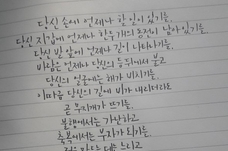 당신 손에 언제나 할 일이 있기를.
당신 지갑에 언제나 한두 개의 동전이 남아 있기를.
당신 발 앞에 언제나 길이 나타나기를.
바람은 언제나 당신의 등 뒤에서 불고
당신의 얼굴에는 해가 비치기를.
이따금 당신의 길에 비가 내리더라도
곧 무지개가 뜨기를.
불행에서는 가난하고
축복에서는 부자가 되기를.